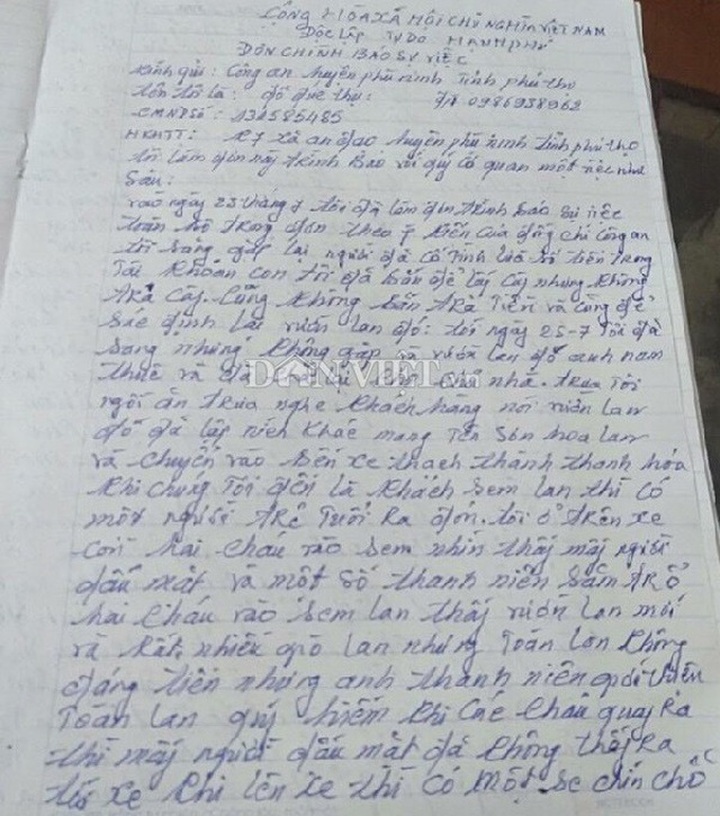 CỘNG HÒA XÃ HỘI CHỦ NGHĨA VIỆT NAM
Độc lập Tự Do Hạnh phú
ĐƠN CHÌNH BÁO SỰ VIỆC
Kính gửi: Công an huyện phù ninh Tỉnh phú thọ
tôn tôi là: đỗ đức thụ: 0986938962
CMND số: 131585485
HKTT: K7 xã an đạo huyện phù ninh tỉnh phú thọ
tôi làm đơn này trình Báo với quý cơ quan một việc như
Sau:
vào ngày 23 tháng 7 tôi đã làm đơn trình báo sự việc
toàn bộ trong đơn theo ý kiến của đồng chí công an
thì sang gặp lại người đã cố tình lừa số tiền trong
Tài khoản con tôi đã bán để lấy cây nhưng không
tRả cây. Cũng không bắn tRả Tiền và cũng để
sác định lại vườn lan đó: tới ngày 25-7 Tôi đã
sang nhưng không gặp và vườn lan đó anh nam
thuê và đã trả lại cho chủ nhà. trưa tôi
ngồi ăn trưa nghe khách hàng nói vườn lan
đó đã lập ních khác mang Tên Sơn hoa lan
và chuyển vào bến xe thạch thành thanh hóa
khi chung Tôi đến là khách sem lan thì có
một người tRẻ Tuổi Ra đón. tôi ở tRên xe
còn hai cháu vào sem nhìn thấy mấy người
dấu mặt và một số thanh niên săm tRổ
hai cháu vào sem lan thấy vườn lan mới
và Rất nhiều giò lan nhưng Toàn lan không
đáng tiền nhưng anh thanh niên giới thiệu
Toàn lan quý hiếm khi các cháu quay Ra
thì mấy người dấu mặt đã không thấy Ra
tới xe khi lên xe thì có một se chín chỗ
DÂN VIỆT.vn